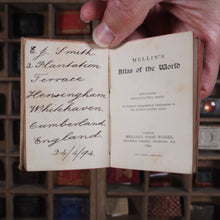 E. J. Smith.
2 Plantation
Terrace
Hensingham
Whitehaven
Cumberland
England.
24/4/94.
MELLIN'S
Atlas of the World
LONDON:
MELLIN'S FOOD WORKS,